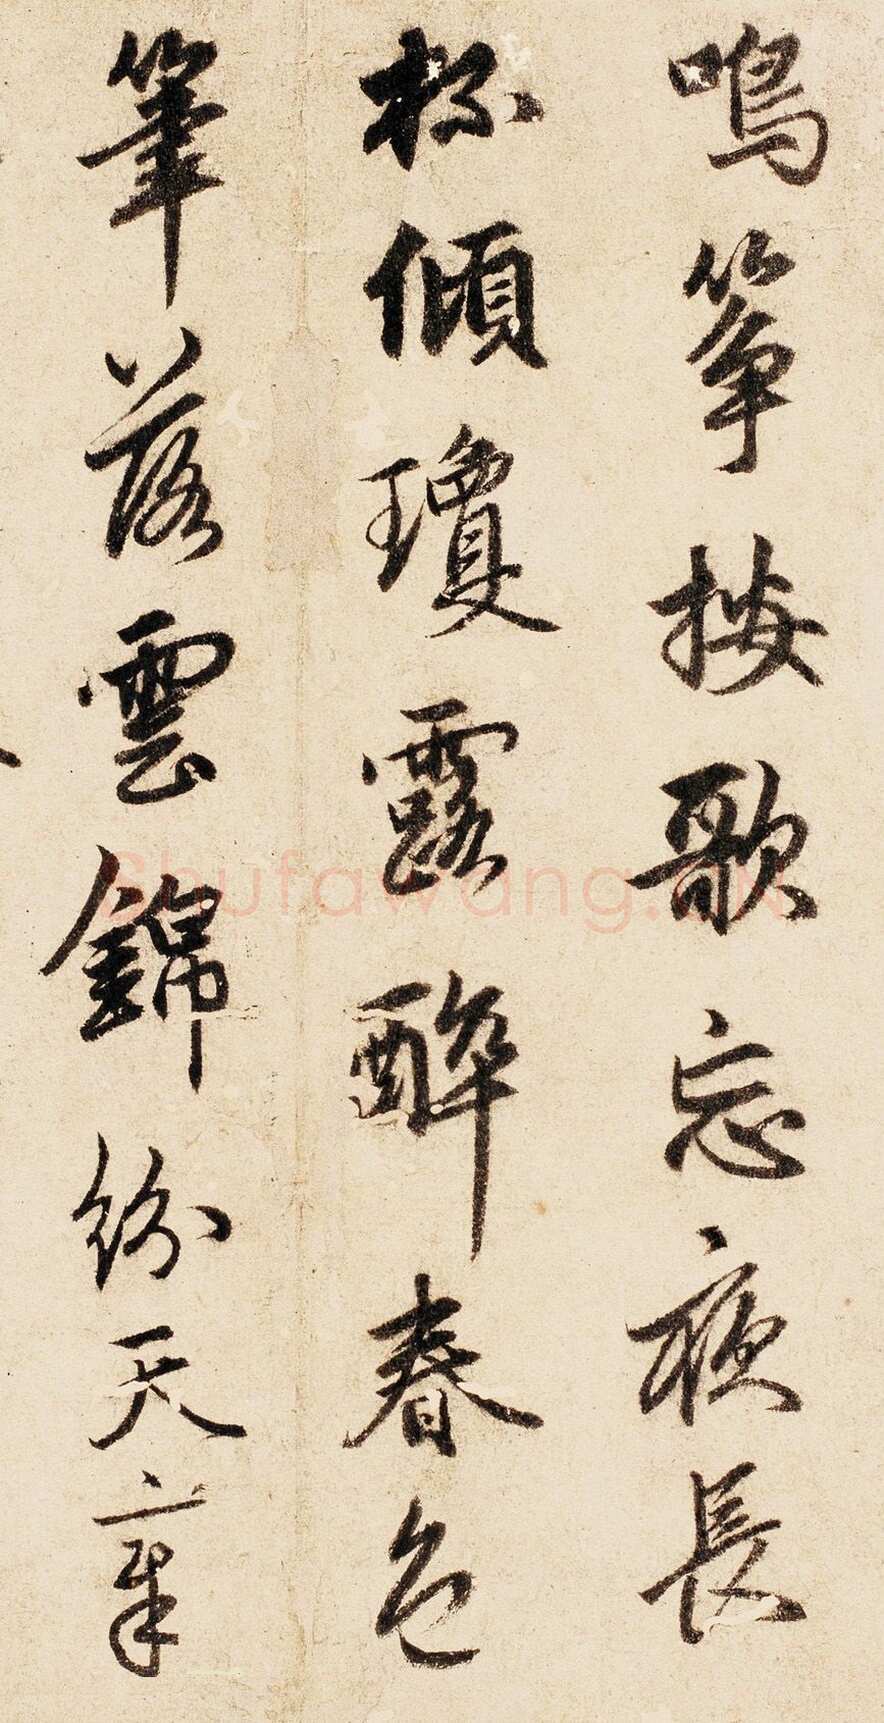 鳴箏按歌忘夜長
杯傾瓊露醉春色
筆落雲錦紛天章
Shufawang.CN